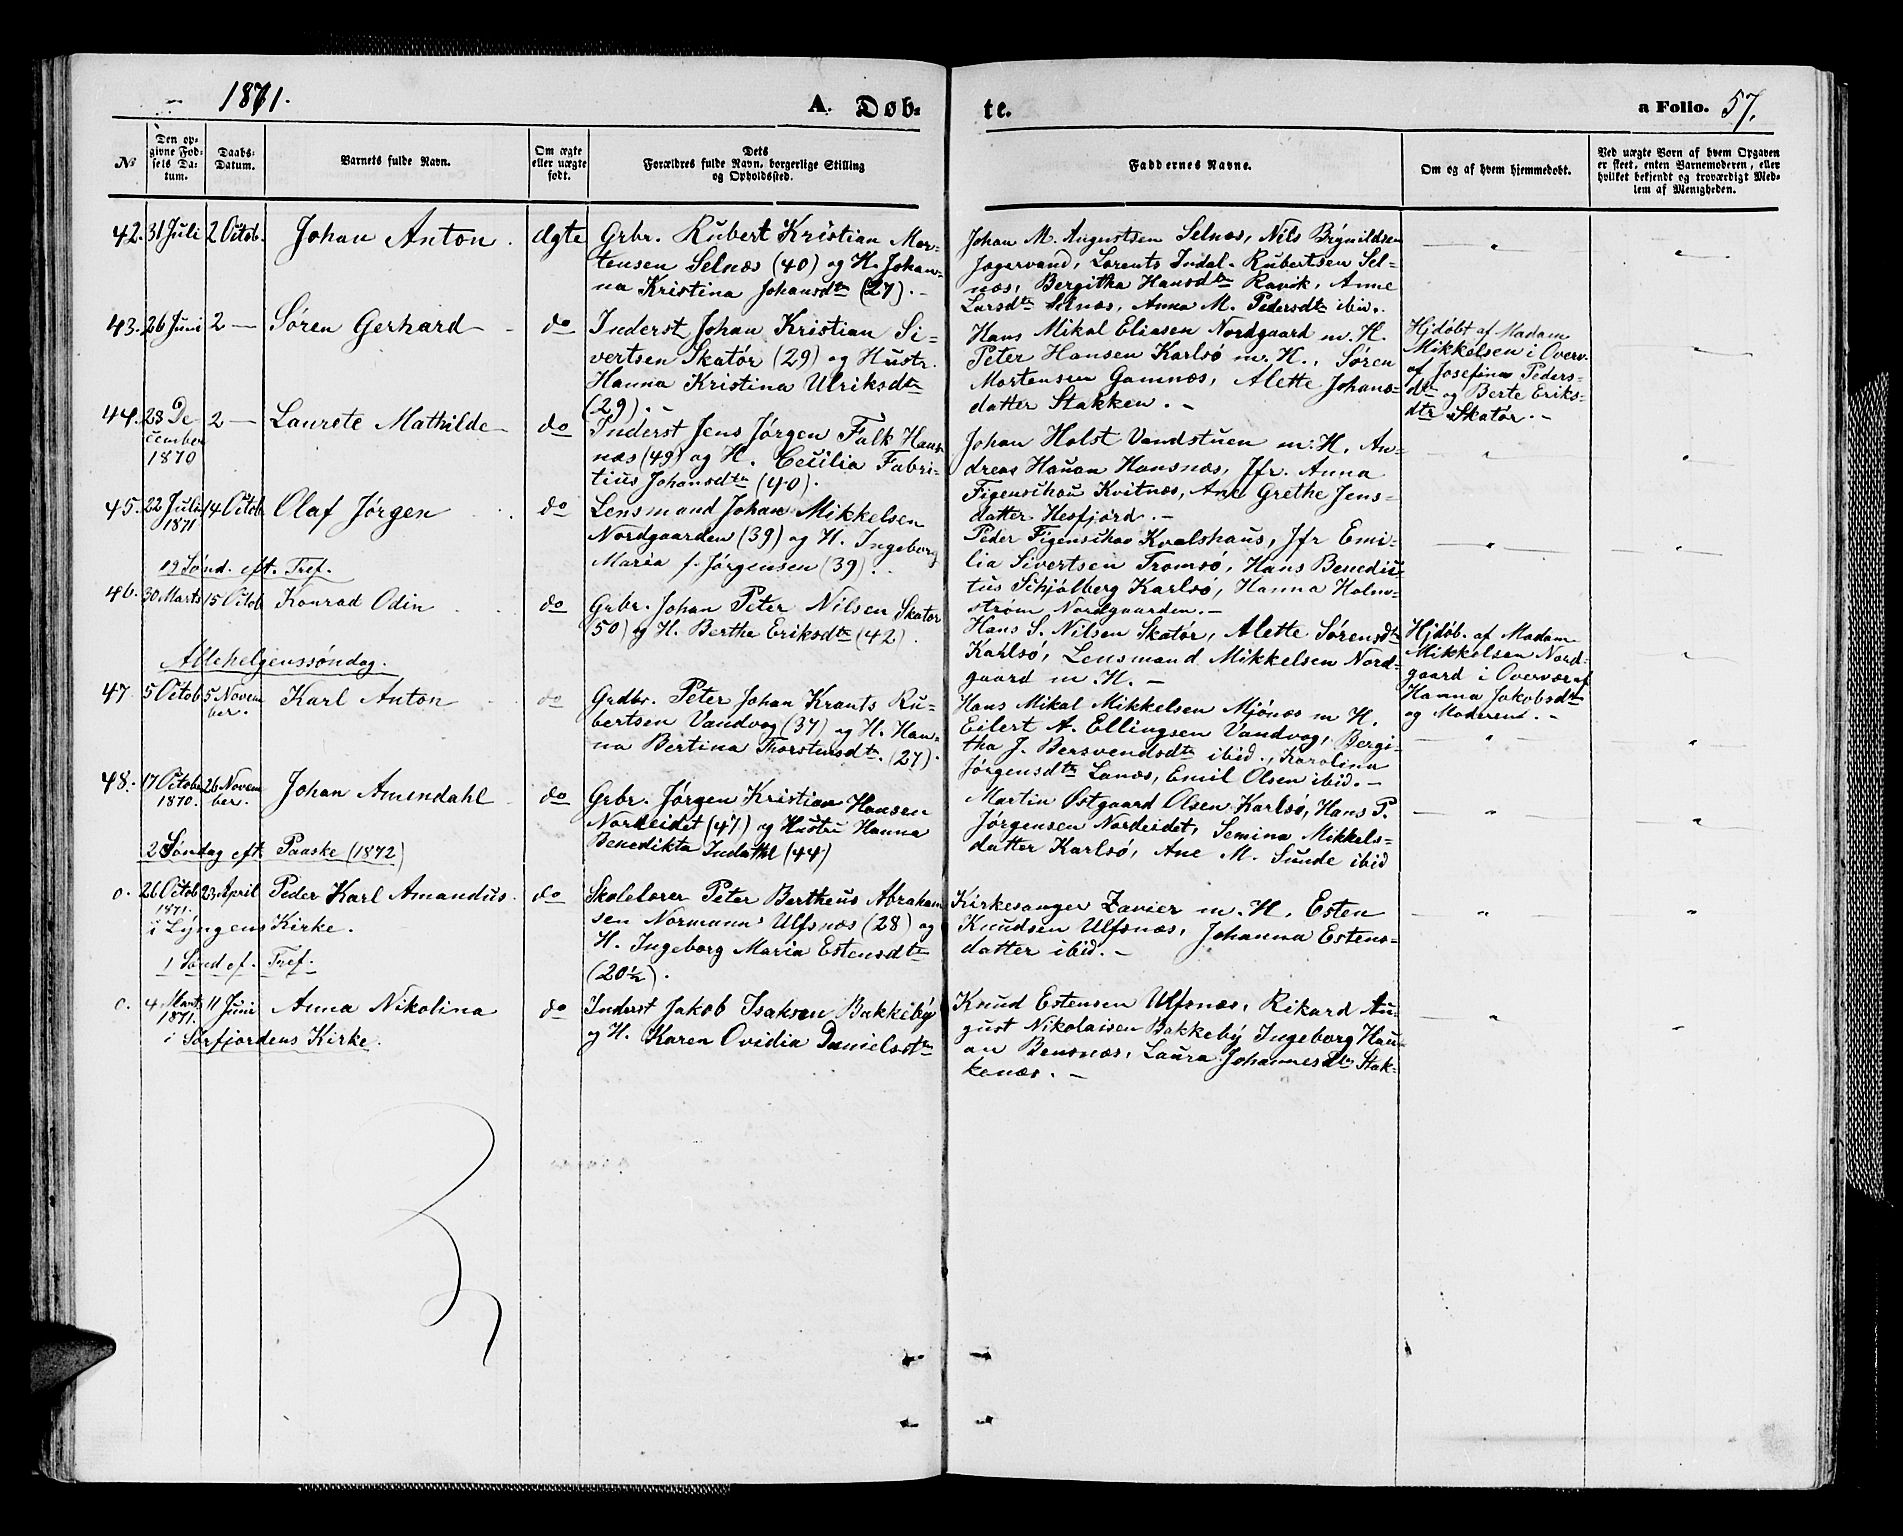 1871.
A. Døb-
te.
a Folio. 57.
No
Den op-
givne Fød-
sels Da-
tum.
Daabs-
Datum.
Barnets fulde Navn.
Om ægte
eller uægte
født.
Dets
Forældres fulde Navn, borgerlige Stilling
og Opholdssted.
Faddernes Navne.
Om og af hvem hjemmedøbt.
Ved uægte Børn af hvem Opgaven
er skeet, enten Barnemoderen, eller
hvilket bekjendt og troværdigt Med-
lem af Menigheden.
42. 31 Juli 2 Octob. Johan Anton. ægte
Grbr. Rubert Kristian Mor-
tensen Selnæs (40) og H. Johan-
na Kristina Johansdtr (27). -
Johan M. Augustsen Selnæs, Nils Brynildsen
Jøgervand, Lorents Indal. Rubertsen Sel-
næs, Bergitha Hansdtr Ravik, Anne
Larsdtr Selnæs, Anna M. Pedersdtr ibid.
43. 26 Juni 2 — Søren Gerhard do
Inderst Johan Kristian Si-
vertsen Skatør (29) og Hustr.
Hanna Kristina Ulriksdtr
(29). -
Hans Mikal Eliasen Nordgaard m. H.
Peter Hansen Karlsø m. H., Søren
Mortensen Gamnæs, Alette Johans-
datter Stakken. -
Hjdøbt af Madam
Mikkelsen i Overv.
af Josefine Peders-
dtr og Berte Eriks-
dtr Skatør. -
44. 23 De-
cember
1870 2 — Laurete Mathilde do
Inderst Jens Jørgen Falk Hans-
næs (49) og H. Cecilia Fabri-
tius Johansdtr (40).
Johan Holst Vandstuen m. H. An-
dreas Hauan Hansnæs, Jfr. Anna
Figenschou Kvitnæs, Ane Grethe Jens-
datter Hesfjord. -
45. 22 Juli
1871 14 Octob Olaf Jørgen do
Lensmand Johan Mikkelsen
Nordgaarden (39) og H. Ingeborg
Maria f. Jørgensen (39).
Peder Figenschou Kvalshaus, Jfr Emi-
lia Sivertsen Tromsø, Hans Benedic-
tus Schjølberg Karlsø, Hanna Holm-
strøm Nordgaarden. -
19 Sønd. eft. Tref.
46. 30 Marts 15 Octob Konrad Odin do
Grbr. Johan Peter Nilsen Skatør
(50) og H. Berthe Eriksdtr (42).
Hans S. Nilsen Skatør, Alette Sørensdtr
Karlsø, Lensmand Mikkelsen Nord-
gaard m. H. -
Hjdøb. af Madam
Mikkelsen Nord-
gaard i Overvær af
Hanna Jakobsdtr
og Moderen. -
Allehelgenssøndag.
47 5 Octob 5 Novem-
ber. Karl Anton do
Grdbr. Peter Johan Krants Ru-
bertsen Vandvog (37) og H. Han-
na Bertina Thorstensdtr. (27).
Hans Mikal Mikkelsen Mjönæs m H.
Eilert A. Ellingsen Vandvog, Bergi-
tha J. Bersvendsdtr ibid., Karolina
Jørgensdtr Lanæs, Emil Olsen ibid. -
48. 17 October
1870. 26 Novem-
ber. Johan Amendahl do
Grbr. Jørgen Kristian Hansen
Nordeidet (47) og Hustru Hanna
Benedikta Indahl (44)
Martin Østgaard Olsen Karlsø, Hans P.
Jørgensen Nordeidet, Semina Mikkels-
datter Karlsø, Ane M. Sunde ibid
2 Søndag eft Paaske (1872)
o. 26 Octob
1871. 23 April Peder Karl Amandus. do
i Lyngens Kirke.
Skolelærer Peter Bertheus Abraham-
sen Normann Ulfsnæs (28) og
H. Ingeborg Maria Estensdtr
(20½).
Kirkesanger Zavier m. H. Esten
Knudsen Ulfsnæs, Johanna Estens-
datter ibid. -
1 Sønd ef. Tref.
o. 4 Marts
1871. 11 Juni Anna Nikolina do
i Sørfjordens Kirke.
Inderst Jakob Isaksen Bakkeby
og H. Karen Ovidia Danielsdtr
Knud Estensen Ulfsnæs, Rikard Au-
gust Nikolaisen Bakkeby Ingeborg Hau-
an Bensnæs, Laura Johannesdtr Stak-
kenæs. -